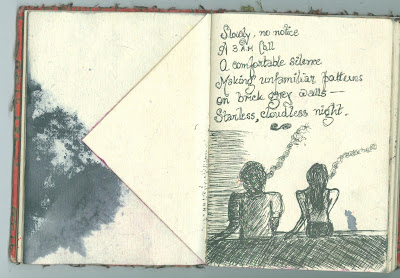 Slowly, no notice
A 3 A.M Call
A comfortable silence
Making unfamiliar patterns
on brick grey walls—
Starless, cloudless night.